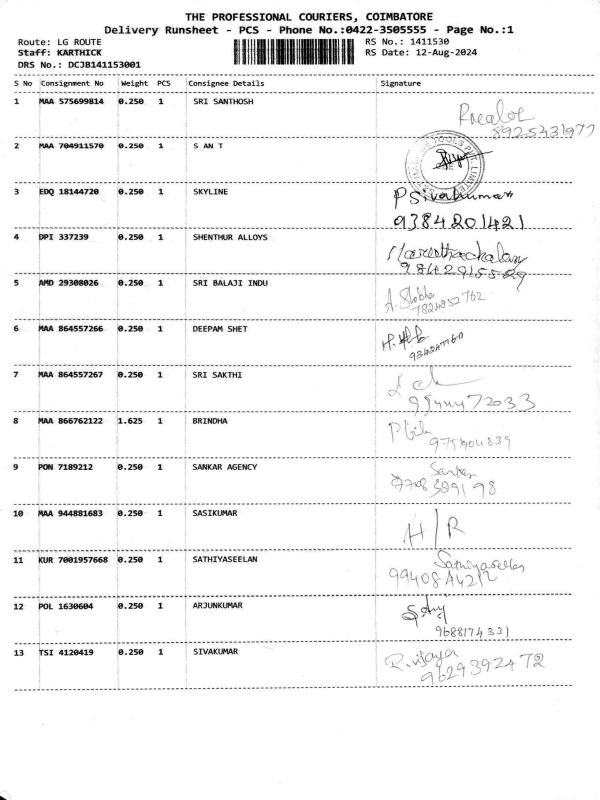 THE PROFESSIONAL COURIERS, COIMBATORE
Delivery Runsheet - PCS - Phone No.:0422-3505555 - Page No.:1
Route: LG ROUTE RS No.: 1411530
Staff: KARTHICK RS Date: 12-Aug-2024
DRS No.: DCJB141153001
S No Consignment No Weight PCS Consignee Details Signature
1 MAA 575699814 0.250 1 SRI SANTHOSH
8925431977
2 MAA 704911570 0.250 1 S AN T
3 EDQ 18144720 0.250 1 SKYLINE P Sivakumar
9384201421
4 DPI 337239 0.250 1 SHENTHUR ALLOYS
5 AMD 29308026 0.250 1 SRI BALAJI INDU A. Shobha
7824852762
6 MAA 864557266 0.250 1 DEEPAM SHET
7 MAA 864557267 0.250 1 SRI SAKTHI
9944472033
8 MAA 866762122 1.625 1 BRINDHA
9751904839
9 PON 7189212 0.250 1 SANKAR AGENCY Sankar
10 MAA 944881683 0.250 1 SASIKUMAR H/R
11 KUR 7001957668 0.250 1 SATHIYASEELAN Sathiyaseelan
12 POL 1630604 0.250 1 ARJUNKUMAR
9688174331
13 TSI 4120419 0.250 1 SIVAKUMAR R. Vijaya
9629392472